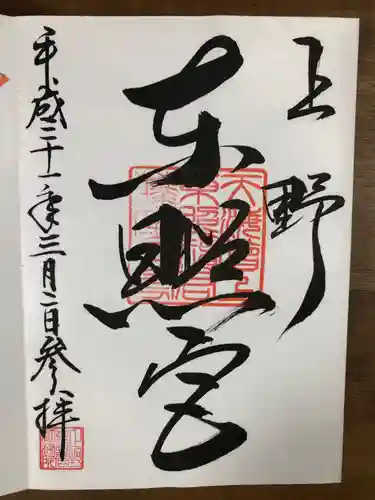 上野
東照宮
平成三十一年三月二日参拝